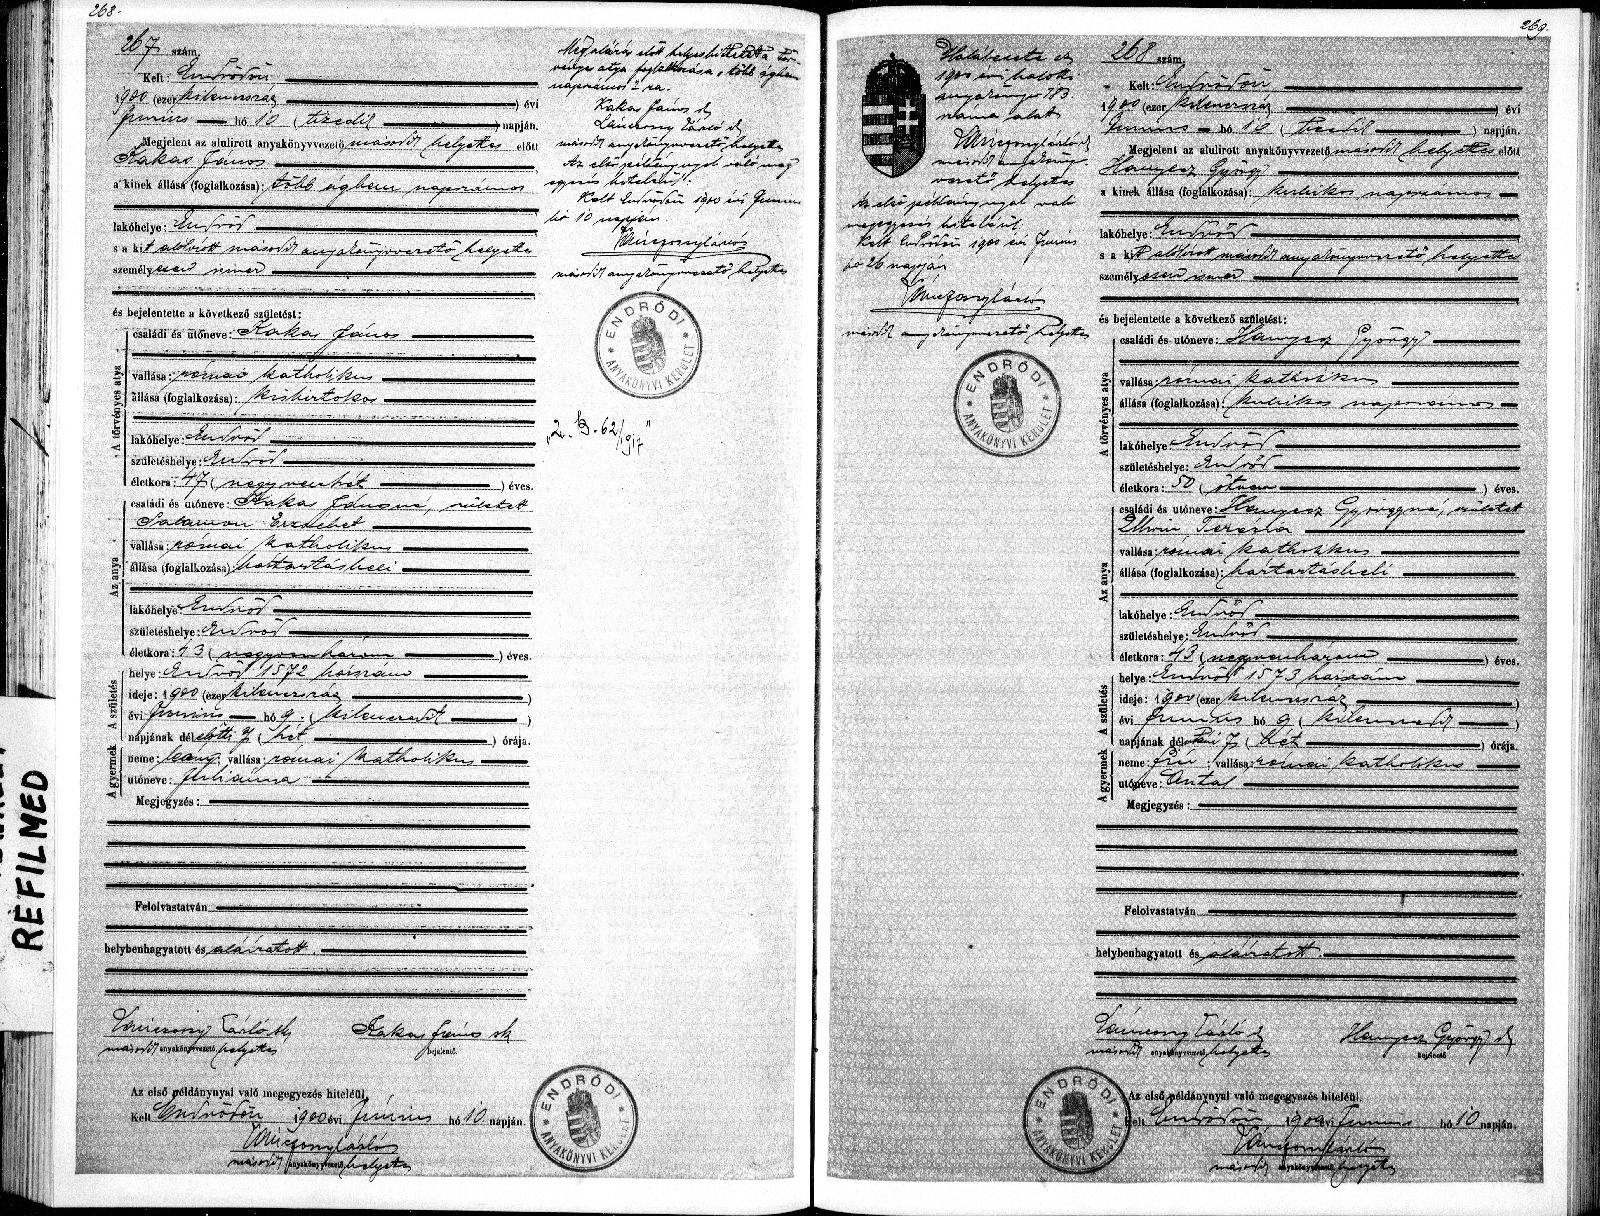 268.
267 szám.
Kelt: Endrődön
1900 (ezer kilenczszáz ) évi
Junius hó 10 (tizedik ) napján.
Megjelent az alulirott anyakönyvvezető másodk helyettes előtt
Kakas János
a kinek állása (foglalkozása): több ágban napszámos
lakóhelye: Endrőd
s a kit alólirott másodk anyakönyvvezető helyettes
személyesen ismer
és bejelentette a következő születést:
A törvényes atya
családi és utóneve: Kakas János
vallása: római katholikus
állása (foglalkozása): kisbirtokos
lakóhelye: Endrőd
születéshelye: Endrőd
életkora: 47 (negyvenhét ) éves.
Az anya
családi és utóneve: Kakas Jánosné, született
Salamon Erzsébet
vallása: római katholikus
állása (foglalkozása): háztartásbeli
lakóhelye: Endrőd
születéshelye: Endrőd
életkora: 43 (negyvenhárom ) éves.
A születés
helye: Endrőd 1572 házszám
ideje: 1900 (ezer kilenczszáz )
évi Junius hó 9. (kilenczedik )
napjának délelőtti 7 (hét ) órája.
A gyermek
neme: leány; vallása: római katholikus
utóneve: Juliánna
Megjegyzés:
Felolvastatván
helybenhagyatott és aláiratott.
Lánczony László sk
másodk anyakönyvvezető helyettes
Kakas János sk
bejelentő.
Az első példánynyal való megegyezés hiteléül.
Kelt Endrődön 1900 évi Junius hó 10 napján.
Lánczony László
másodk anyakönyvvezető helyettes
ENDRŐDI * ANYAKÖNYVI KERÜLET *
Megaláirás előtt helyesbittetett a tör-
vényes atya foglalkozása „több ágban
napszámos"-ra.
Kakas János sk
Lánczony László sk
másodk anyakönyvvezető helyettes
Az első példánynyal való meg
egyezés hiteléül.
Kelt Endrődön 1900 évi Junius
hó 10 napján
Lánczony László
másodk anyakönyvvezető helyettes
ENDRŐDI * ANYAKÖNYVI KERÜLET *
„2. B. 62/1917"
REFILMED
269.
Halálesete az
1900 évi halotti
anyakönyv 183
száma alatt
Lánczony László sk
másodk anyakönyv
vezető helyettes
Az első példánynyal való
megegyezés hiteléül
Kelt Endrődön 1900 évi Junius
hó 26 napján
Lánczony László
másodk anyakönyvvezető helyettes
ENDRŐDI * ANYAKÖNYVI KERÜLET *
268 szám.
Kelt: Endrődön
1900 (ezer kilenczszáz ) évi
Junius hó 10 (tizedik ) napján.
Megjelent az alulirott anyakönyvvezető másodk helyettes előtt
Hanyecz György
a kinek állása (foglalkozása): kubikos napszámos
lakóhelye: Endrőd
s a kit alólirott másodk anyakönyvvezető helyettes
személyesen ismer
és bejelentette a következő születést:
A törvényes atya
családi és utóneve: Hanyecz György
vallása: római katholikus
állása (foglalkozása): kubikos napszámos
lakóhelye: Endrőd
születéshelye: Endrőd
életkora: 50 (ötven ) éves.
Az anya
családi és utóneve: Hanyecz Györgyné, született
Terézia
vallása: római katholikus
állása (foglalkozása): háztartásbeli
lakóhelye: Endrőd
születéshelye: Endrőd
életkora: 43 (negyvenhárom ) éves.
A születés
helye: Endrőd 1573 házszám
ideje: 1900 (ezer kilenczszáz )
évi Junius hó 9 (kilenczedik )
napjának délutáni 7 (hét ) órája.
A gyermek
neme: fiu; vallása: római katholikus
utóneve: Antal
Megjegyzés:
Felolvastatván
helybenhagyatott és aláiratott.
Lánczony László sk
másodk anyakönyvvezető helyettes
Hanyecz György sk
bejelentő
Az első példánynyal való megegyezés hiteléül.
Kelt Endrődön 1900 évi Junius hó 10 napján.
Lánczony László
másodk anyakönyvvezető helyettes
ENDRŐDI * ANYAKÖNYVI KERÜLET *